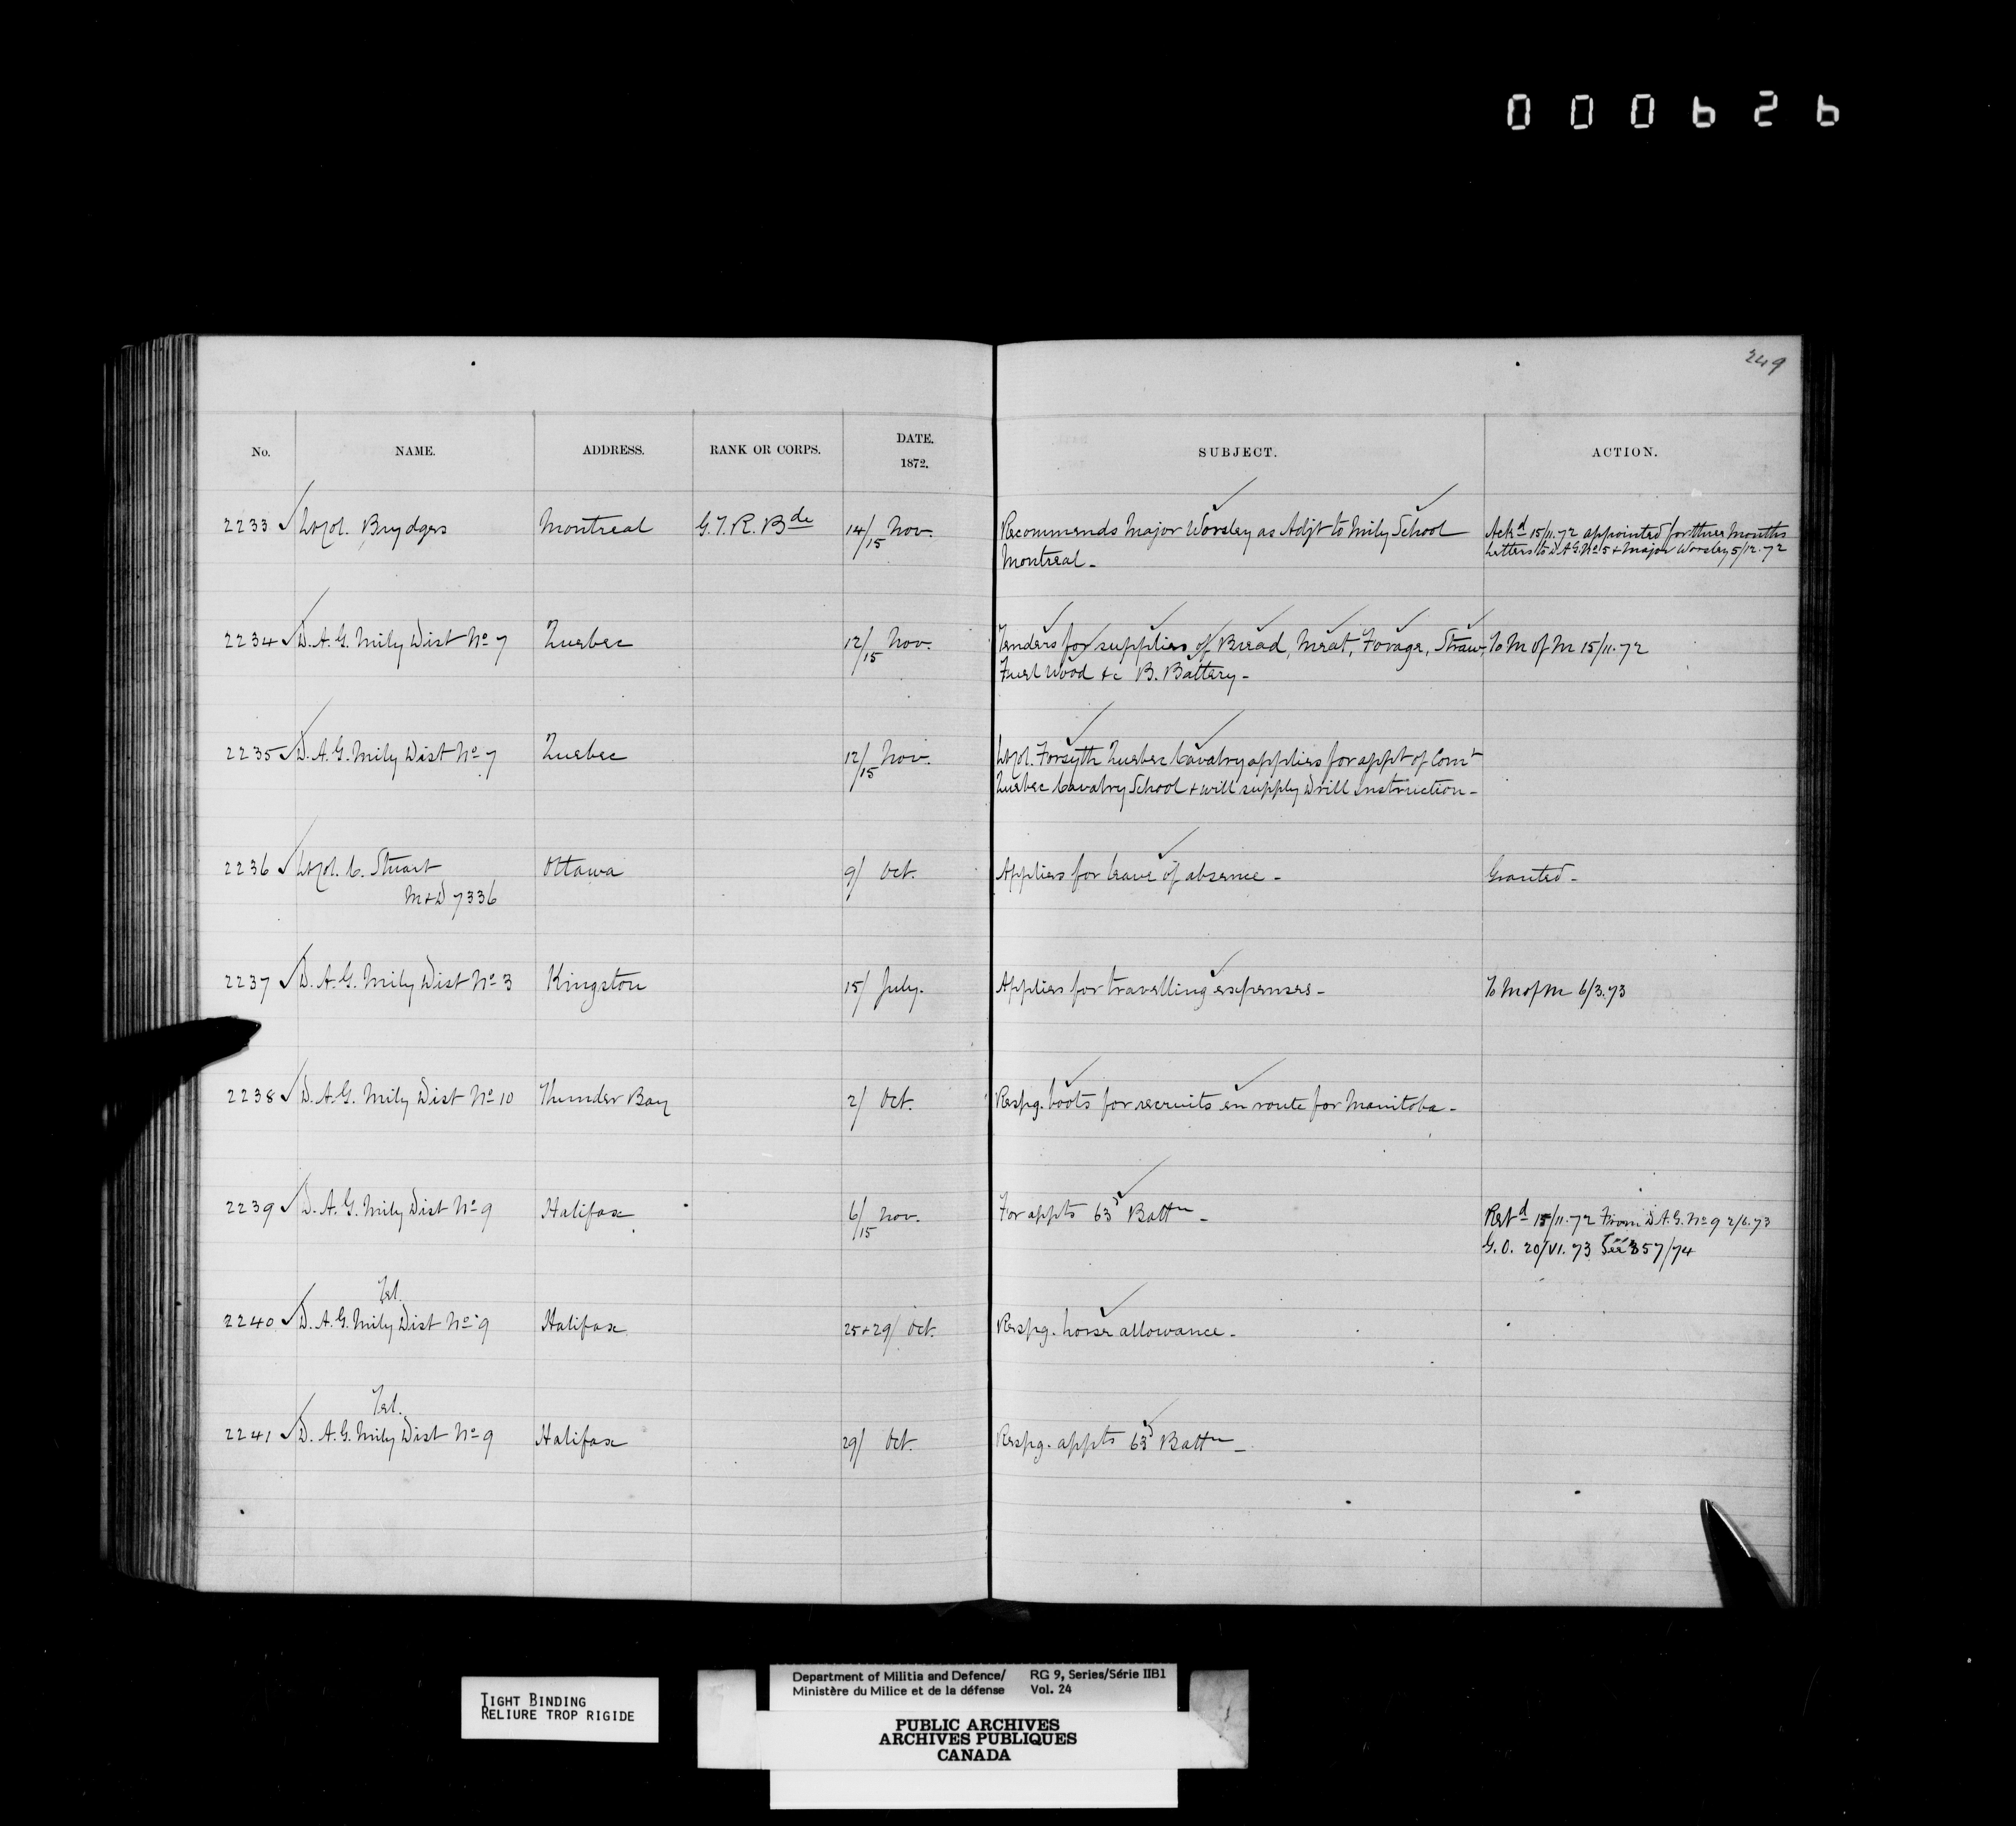 000626
249
No. NAME. ADDRESS. RANK OR CORPS. DATE. 1872. SUBJECT. ACTION.
2233 Lt Col. Brydges Montreal G.T.R. Bde 14/15 Nov. Recommends Major Worsley as Adjt to Mily School Ackd 15/11.72 appointed for three months
Montreal - Letters to D.A.G. No 5 + Major Worsley 5/12.72
2234 D.A.G. Mily Dist No 7 Quebec 12/15 Nov. Tenders for supplies of Bread, Meat, Forage, Straw, To M of M 15/11.72
Fuel Wood &c B. Battery -
2235 D.A.G. Mily Dist No 7 Quebec 12/15 Nov. Lt Col. Forsyth Quebec Cavalry applies for appt of Comt
Quebec Cavalry School + will supply Drill Instruction -
2236 Lt Col. C. Stuart Ottawa 9/ Oct. Applies for leave of absence - Granted -
M+D 7336
2237 D.A.G. Mily Dist No 3 Kingston 15/ July. Applies for travelling expenses - To M of M 6/3.73
2238 D.A.G. Mily Dist No 10 Thunder Bay 2/ Oct. Respg. boots for recruits en route for Manitoba -
2239 D.A.G. Mily Dist No 9 Halifax 6/15 Nov. For appts 63d Battn - Retd 15/11.72 From D.A.G. No 9 2/6.73
G.O. 20/VI.73 See 857/74
Tel.
2240 D.A.G. Mily Dist No 9 Halifax 25+29/ Oct. Respg. horse allowance -
Tel.
2241 D.A.G. Mily Dist No 9 Halifax 29/ Oct. Respg. appts 63d Battn -
TIGHT BINDING
RELIURE TROP RIGIDE
Department of Militia and Defence/ RG 9, Series/Série IIB1
Ministère du Milice et de la défense Vol. 24
PUBLIC ARCHIVES
ARCHIVES PUBLIQUES
CANADA